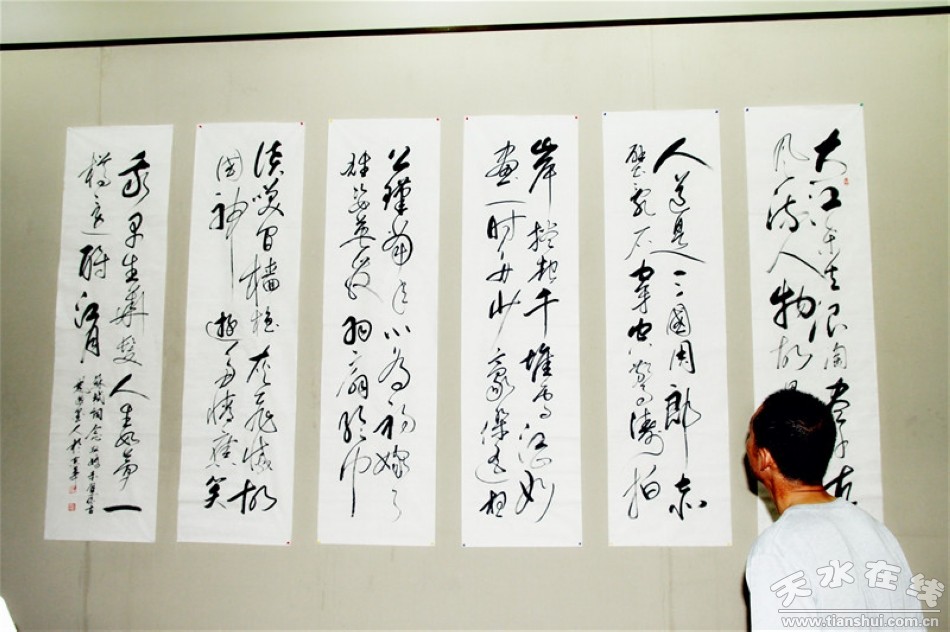 大江东去浪淘尽千古
风流人物故
人道是三國周郎赤
壁乱石穿空惊涛拍
岸捲起千堆雪江山如
画一时多少豪傑遥想
公瑾当年小乔初嫁了
雄姿英发羽扇纶巾
谈笑间檣櫓灰飞灭故
国神遊多情应笑
我早生華髮人生如梦一
樽还酹江月
苏轼词念奴娇赤壁怀古
天水在线
www.tianshui.com.cn